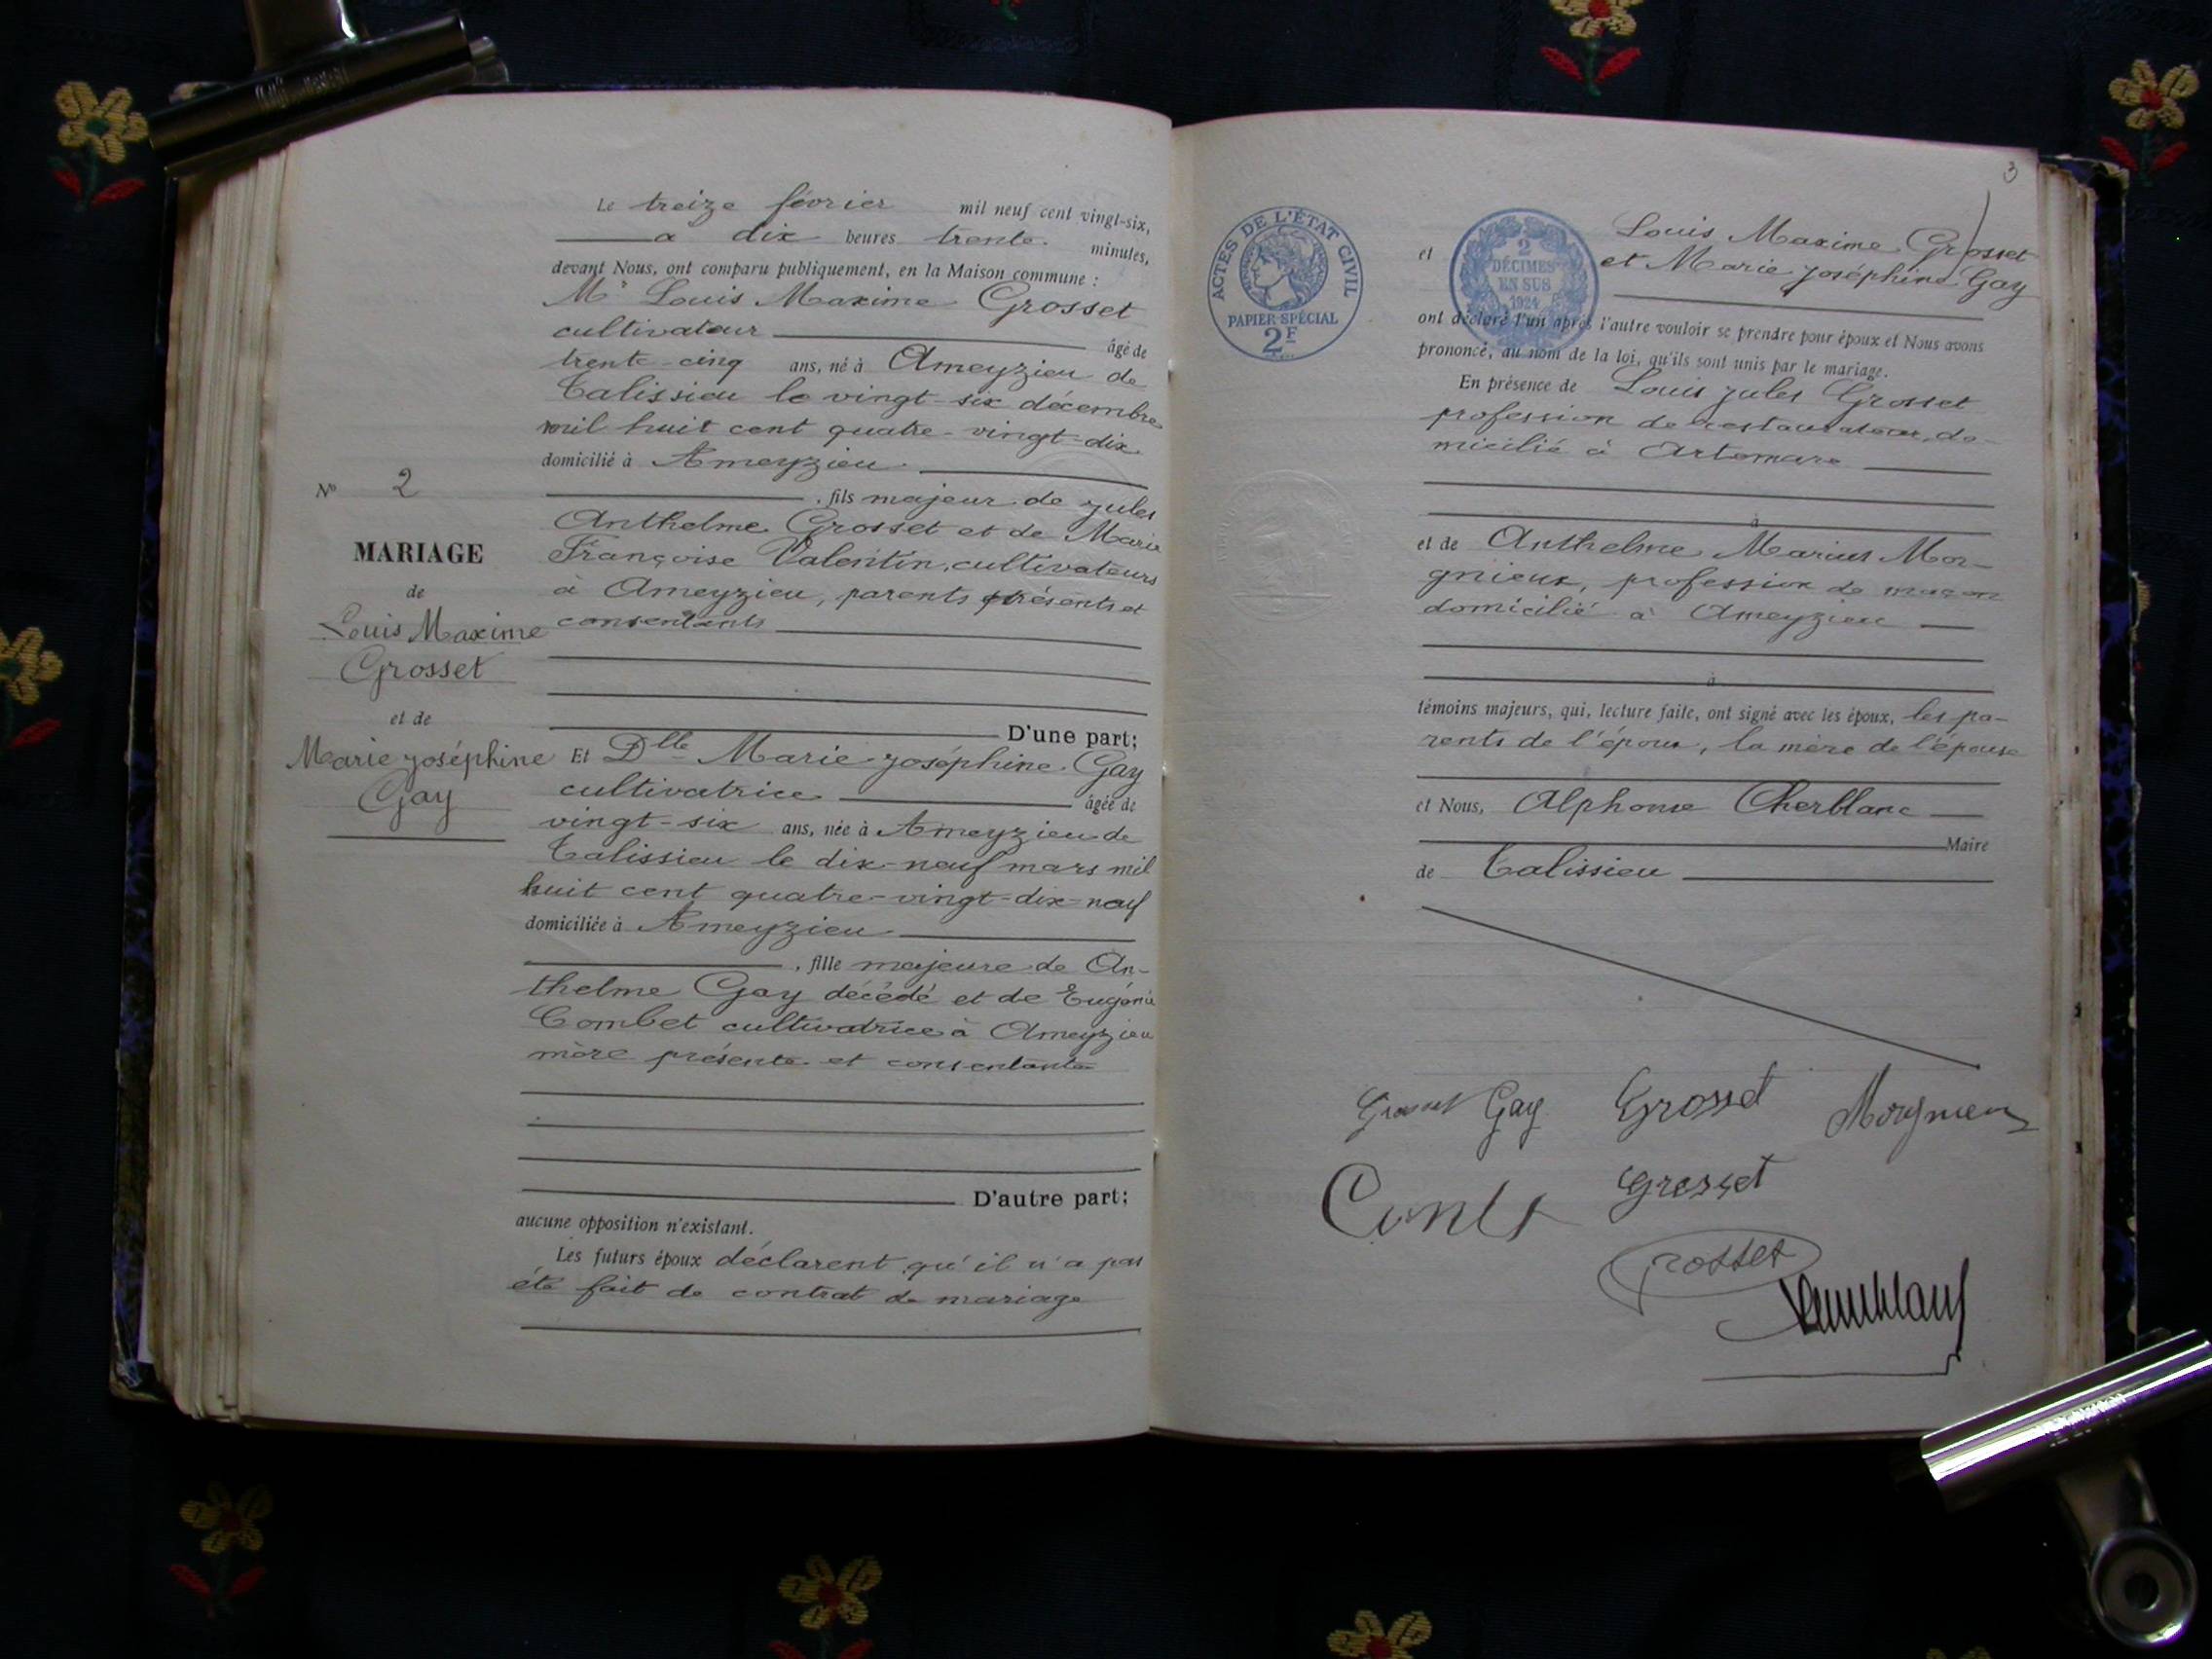 Nº 2
MARIAGE
de
Louis Maxime
Grosset
et de
Marie Joséphine
Gay
Le treize février mil neuf cent vingt-six,
à dix heures trente minutes,
devant Nous, ont comparu publiquement, en la Maison commune :
Mr Louis Maxime Grosset
cultivateur âgé de
trente-cinq ans, né à Ameyzieu de
Talissieu le vingt-six décembre
mil huit cent quatre-vingt-dix
domicilié à Ameyzieu
, fils majeur de Jules
Anthelme Grosset et de Marie
Françoise Valentin, cultivateurs
à Ameyzieu, parents présents et
consentants
D'une part;
Et Dlle Marie Joséphine Gay
cultivatrice âgée de
vingt-six ans, née à Ameyzieu de
Talissieu le dix-neuf mars mil
huit cent quatre-vingt-dix-neuf
domiciliée à Ameyzieu
, fille majeure de An-
thelme Gay décédé et de Eugénie
Combet cultivatrice à Ameyzieu
mère présente et consentante
D'autre part;
aucune opposition n'existant.
Les futurs époux déclarent qu'il n'a pas
été fait de contrat de mariage
3
ACTES DE L'ÉTAT CIVIL
PAPIER SPÉCIAL
2F
2
DÉCIMES
EN SUS
1924
et Louis Maxime Grosset
et Marie Joséphine Gay
ont déclaré l'un après l'autre vouloir se prendre pour époux et Nous avons
prononcé, au nom de la loi, qu'ils sont unis par le mariage.
En présence de Louis Jules Grosset
profession de restaurateur, do-
micilié à Artemare
à
et de Anthelme Marius Mor-
gnieux, profession de maçon
domicilié à Ameyzieu
à
témoins majeurs, qui, lecture faite, ont signé avec les époux, les pa-
rents de l'époux, la mère de l'épouse
et Nous, Alphonse Cherblanc
Maire
de Talissieu
Grosset Gay Grosset Morgnieux
Grosset
Grosset